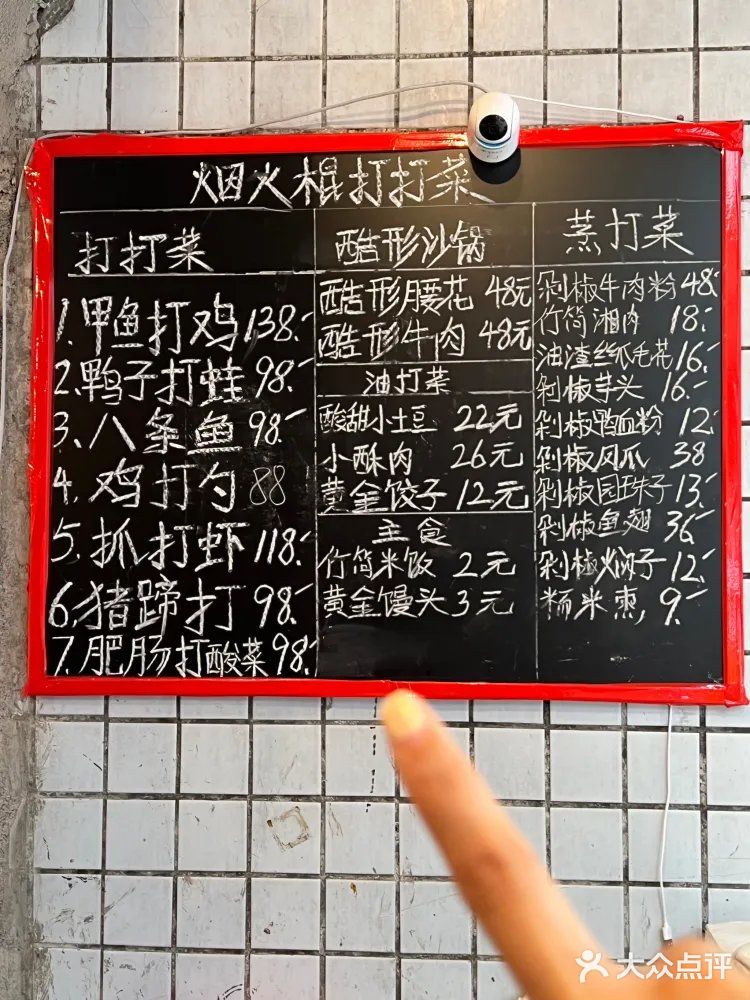 烟火棍打打菜
打打菜
1.甲鱼打鸡138.-
2.鸭子打蛙98.-
3.八条鱼98.-
4.鸡打勺88
5.抓打虾118.-
6.猪蹄打98.-
7.肥肠打酸菜98.-
酷形沙锅
酷形腰花48元
酷形牛肉48元
油打菜
酸甜小土豆22元
小酥肉26元
黄金饺子12元
主食
竹筒米饭2元
黄金馒头3元
蒸打菜
剁椒牛肉粉48.-
竹筒湘肉18.-
油渣丝瓜毛花16.-
剁椒芋头16.-
剁椒鸭血粉12.-
剁椒凤爪38
剁椒园珠子13.-
剁椒鱼翅36.-
剁椒焖子12.-
米枣,9.-
大众点评